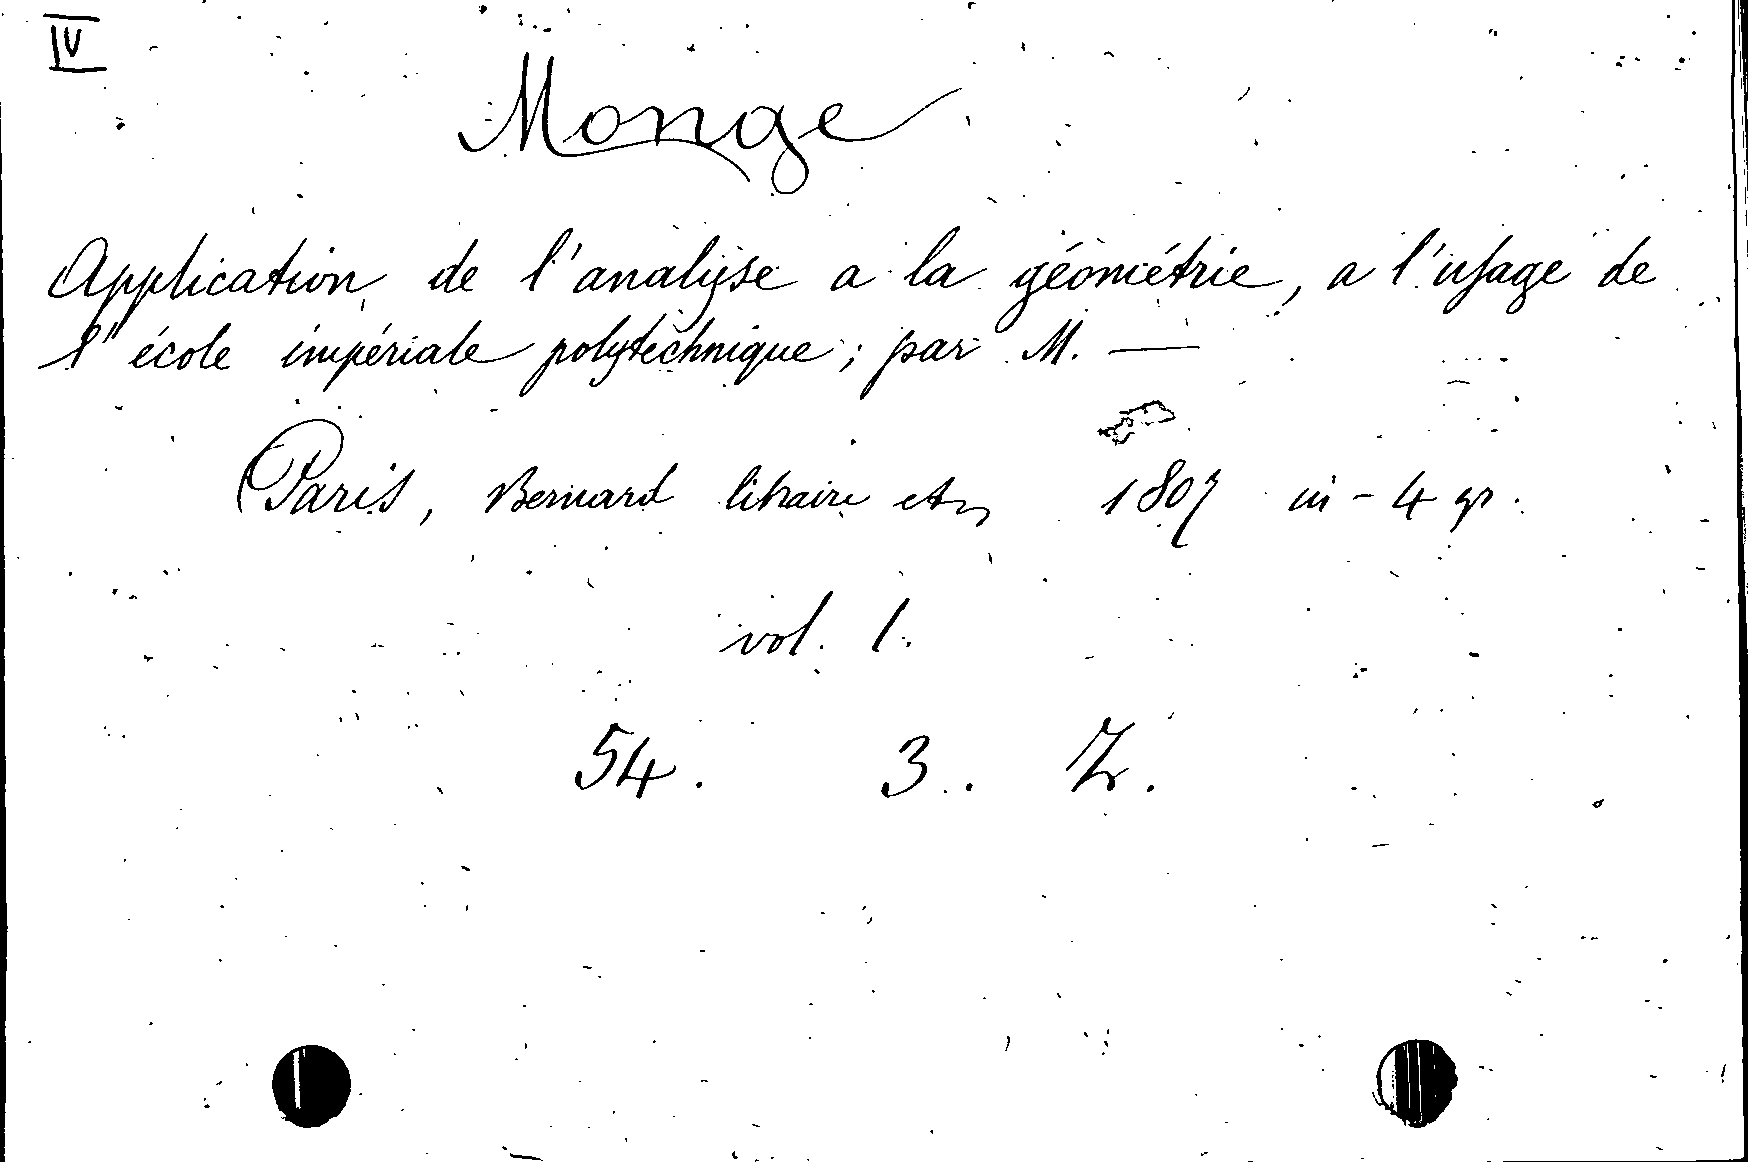 IV
Monge
Application de l'analyse a la géométrie, a l'usage de
l'école impériale polytechnique; par M. —
Paris, Bernard libraire etc 1807 in-4 gr.
vol. 1.
54. 3. Z.